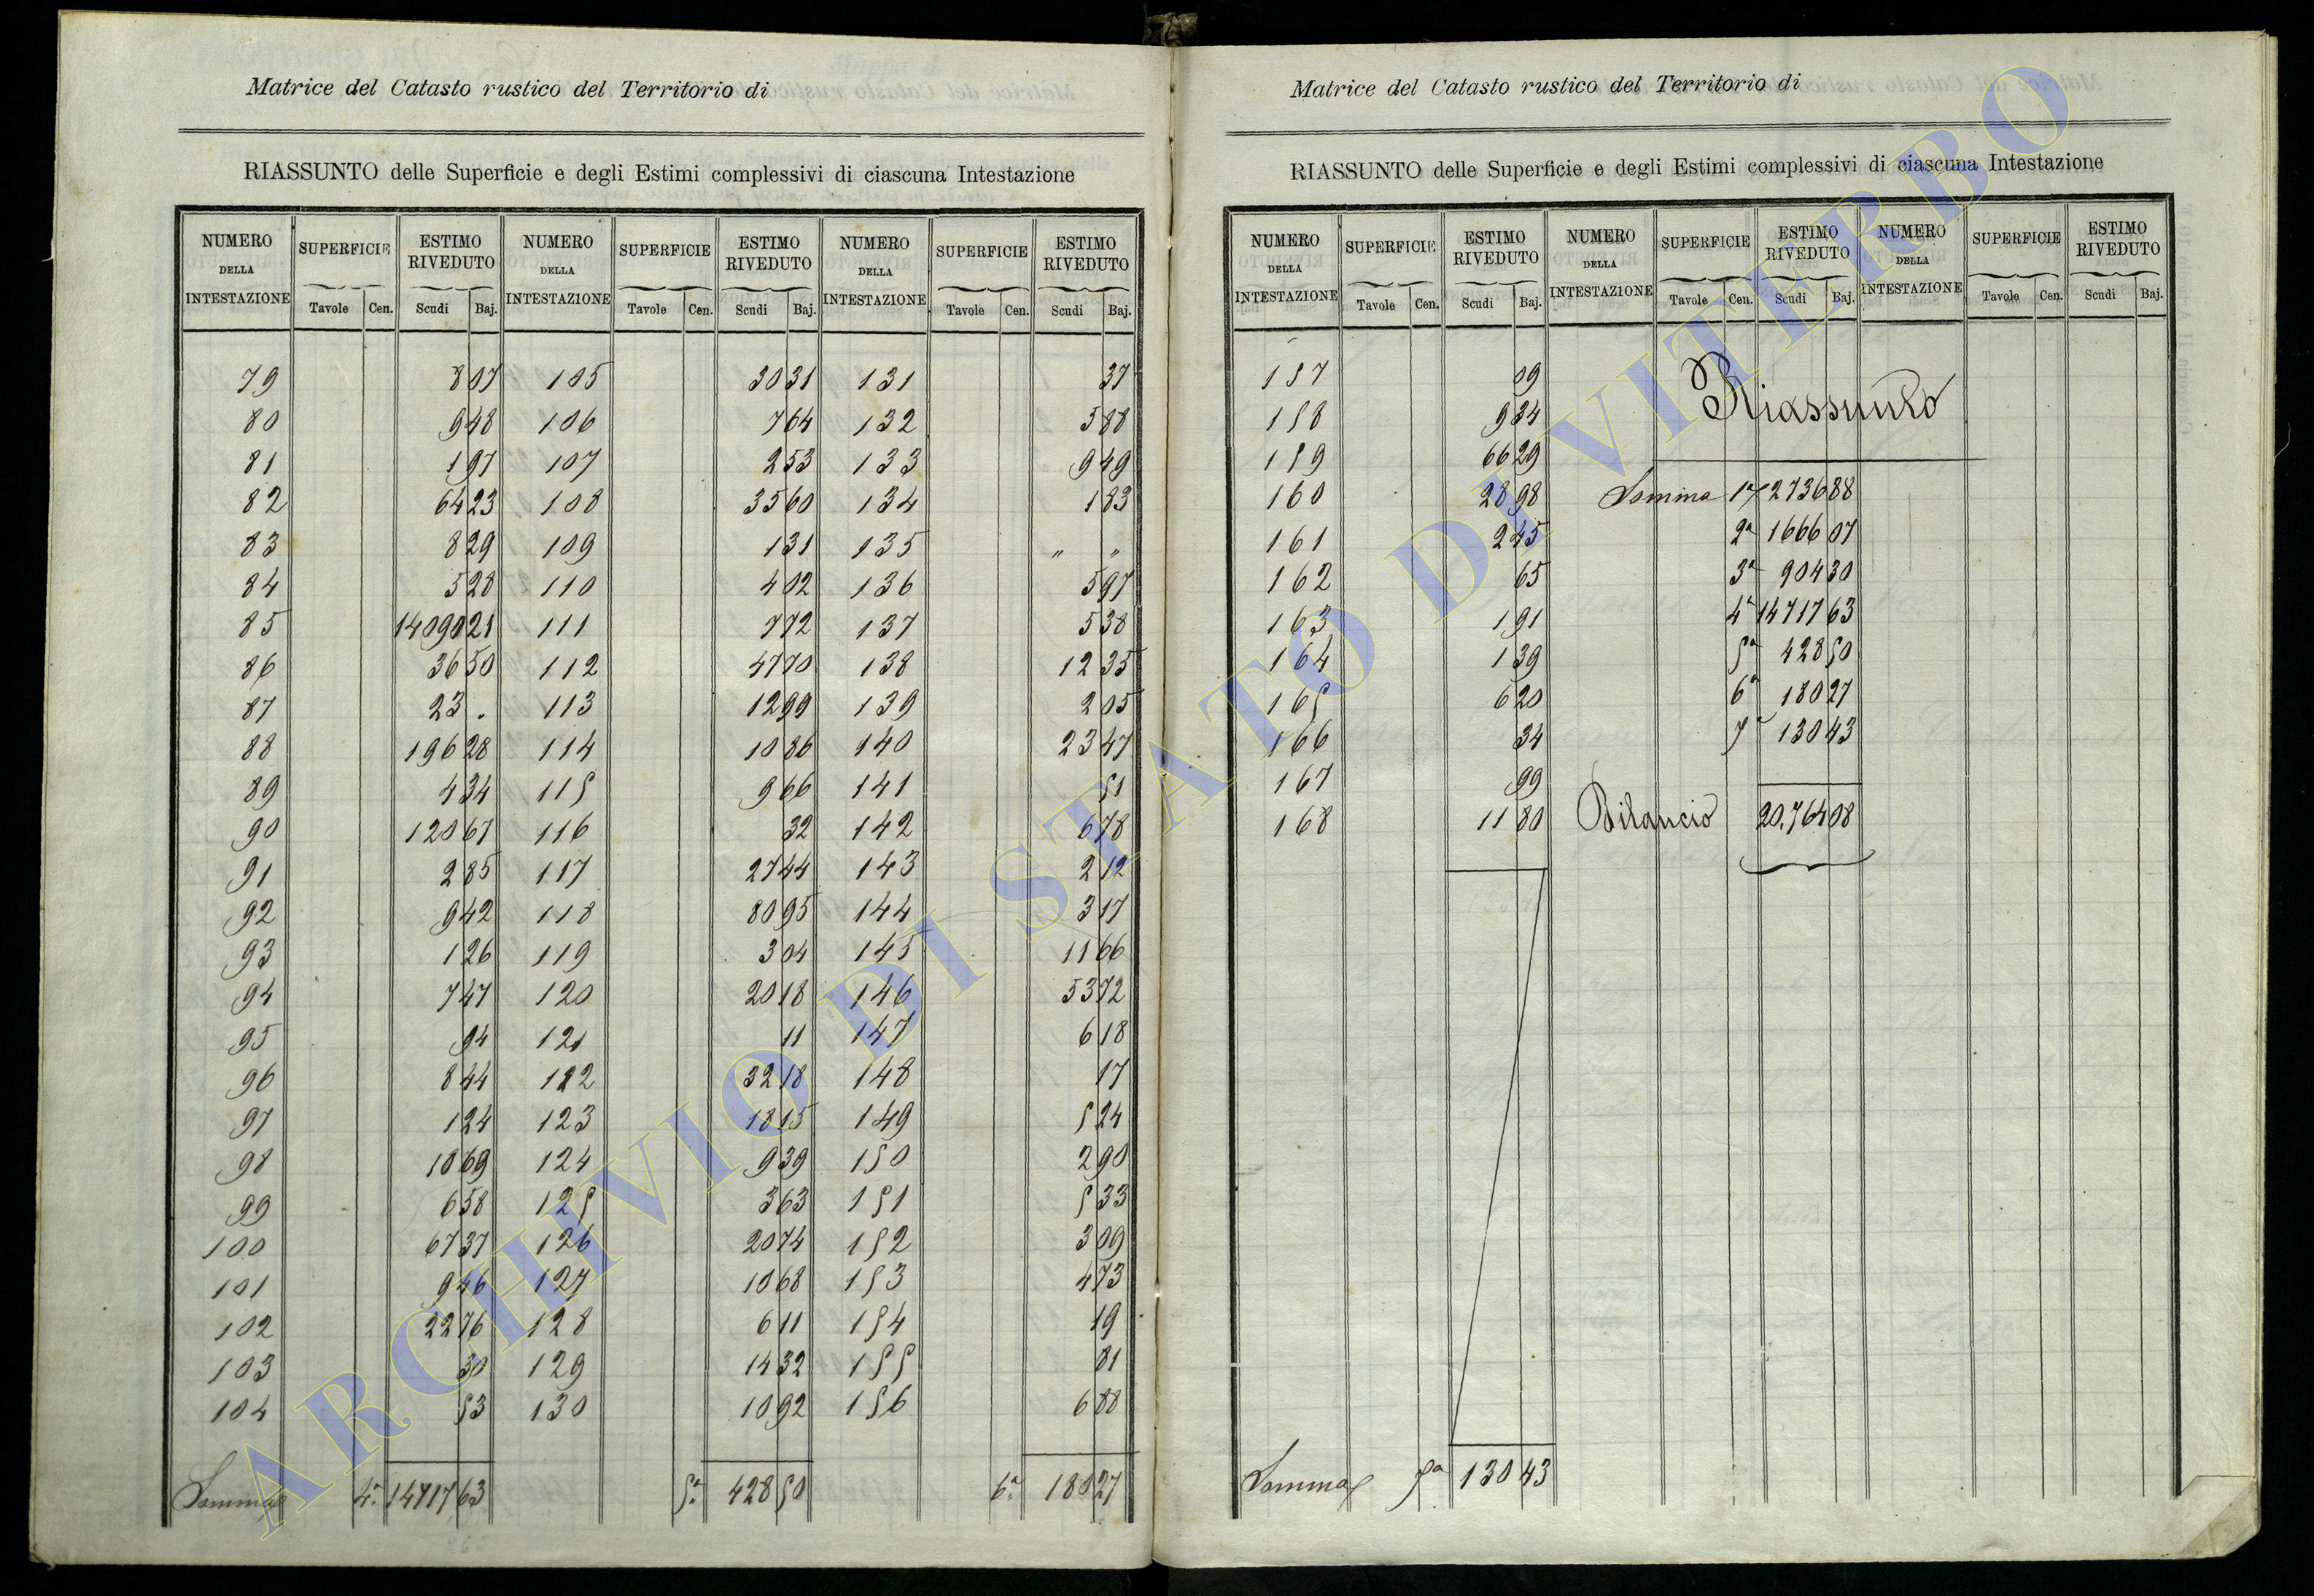 Matrice del Catasto rustico del Territorio di
RIASSUNTO delle Superficie e degli Estimi complessivi di ciascuna Intestazione
NUMERO DELLA INTESTAZIONE SUPERFICIE ESTIMO RIVEDUTO NUMERO DELLA INTESTAZIONE SUPERFICIE ESTIMO RIVEDUTO NUMERO DELLA INTESTAZIONE SUPERFICIE ESTIMO RIVEDUTO
Tavole Cen. Scudi Baj. Tavole Cen. Scudi Baj. Tavole Cen. Scudi Baj.
79 8 07 105 30 31 131 37
80 9 48 106 7 64 132 5 88
81 1 97 107 2 53 133 9 49
82 64 23 108 35 60 134 1 83
83 8 29 109 1 31 135 " "
84 5 28 110 4 02 136 5 97
85 14090 21 111 7 72 137 5 38
86 36 50 112 47 70 138 12 35
87 23 . 113 12 99 139 2 05
88 196 28 114 10 86 140 23 47
89 4 34 115 9 66 141 51
90 120 67 116 32 142 6 78
91 2 85 117 27 44 143 2 12
92 9 42 118 80 95 144 3 17
93 1 26 119 3 04 145 11 66
94 7 47 120 20 18 146 53 72
95 94 121 11 147 6 18
96 8 44 122 32 18 148 17
97 1 24 123 18 15 149 5 24
98 10 69 124 9 39 150 2 90
99 6 58 125 3 63 151 5 33
100 67 37 126 20 74 152 3 09
101 9 46 127 10 68 153 4 73
102 22 76 128 6 11 154 19
103 30 129 14 32 155 81
104 53 130 10 92 156 6 88
Somma 4ª 14717 63 5ª 428 50 6ª 180 27
Matrice del Catasto rustico del Territorio di
RIASSUNTO delle Superficie e degli Estimi complessivi di ciascuna Intestazione
NUMERO DELLA INTESTAZIONE SUPERFICIE ESTIMO RIVEDUTO NUMERO DELLA INTESTAZIONE SUPERFICIE ESTIMO RIVEDUTO NUMERO DELLA INTESTAZIONE SUPERFICIE ESTIMO RIVEDUTO
Tavole Cen. Scudi Baj. Tavole Cen. Scudi Baj. Tavole Cen. Scudi Baj.
157 09
Riassunto
158 9 34
159 66 29
160 28 98 Somma 1ª 2736 88
161 2 45 2ª 1666 07
162 65 3ª 904 30
163 1 91 4ª 14717 63
164 1 39 5ª 428 50
165 6 20 6ª 180 27
166 34 7ª 130 43
167 99
168 11 80 Bilancio 20.764 08
Somma 7ª 130 43
ARCHIVIO DI STATO DI VITERBO